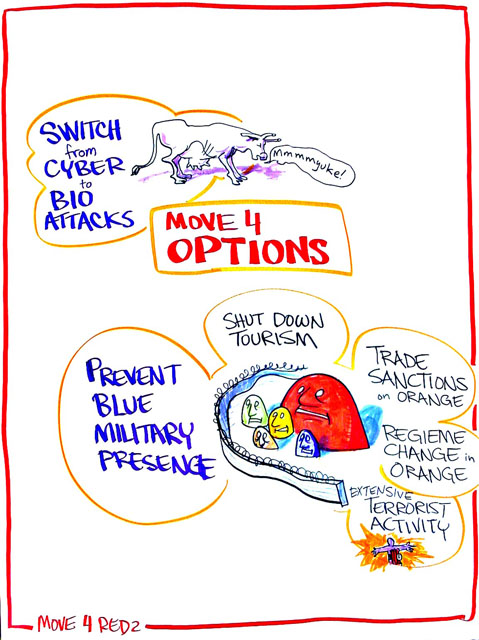 SWITCH
from
CYBER
to
BIO
ATTACKS
Mmmmyuke!
MOVE 4
OPTIONS
SHUT DOWN
TOURISM
PREVENT
BLUE
MILITARY
PRESENCE
TRADE
SANCTIONS
on ORANGE
REGIEME
CHANGE in
ORANGE
EXTENSIVE
TERRORIST
ACTIVITY
MOVE 4 RED2